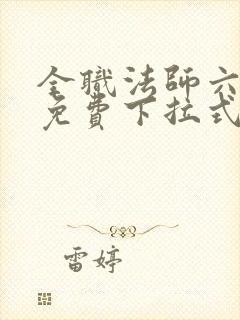 全職法師六
免費下拉式
雷婷